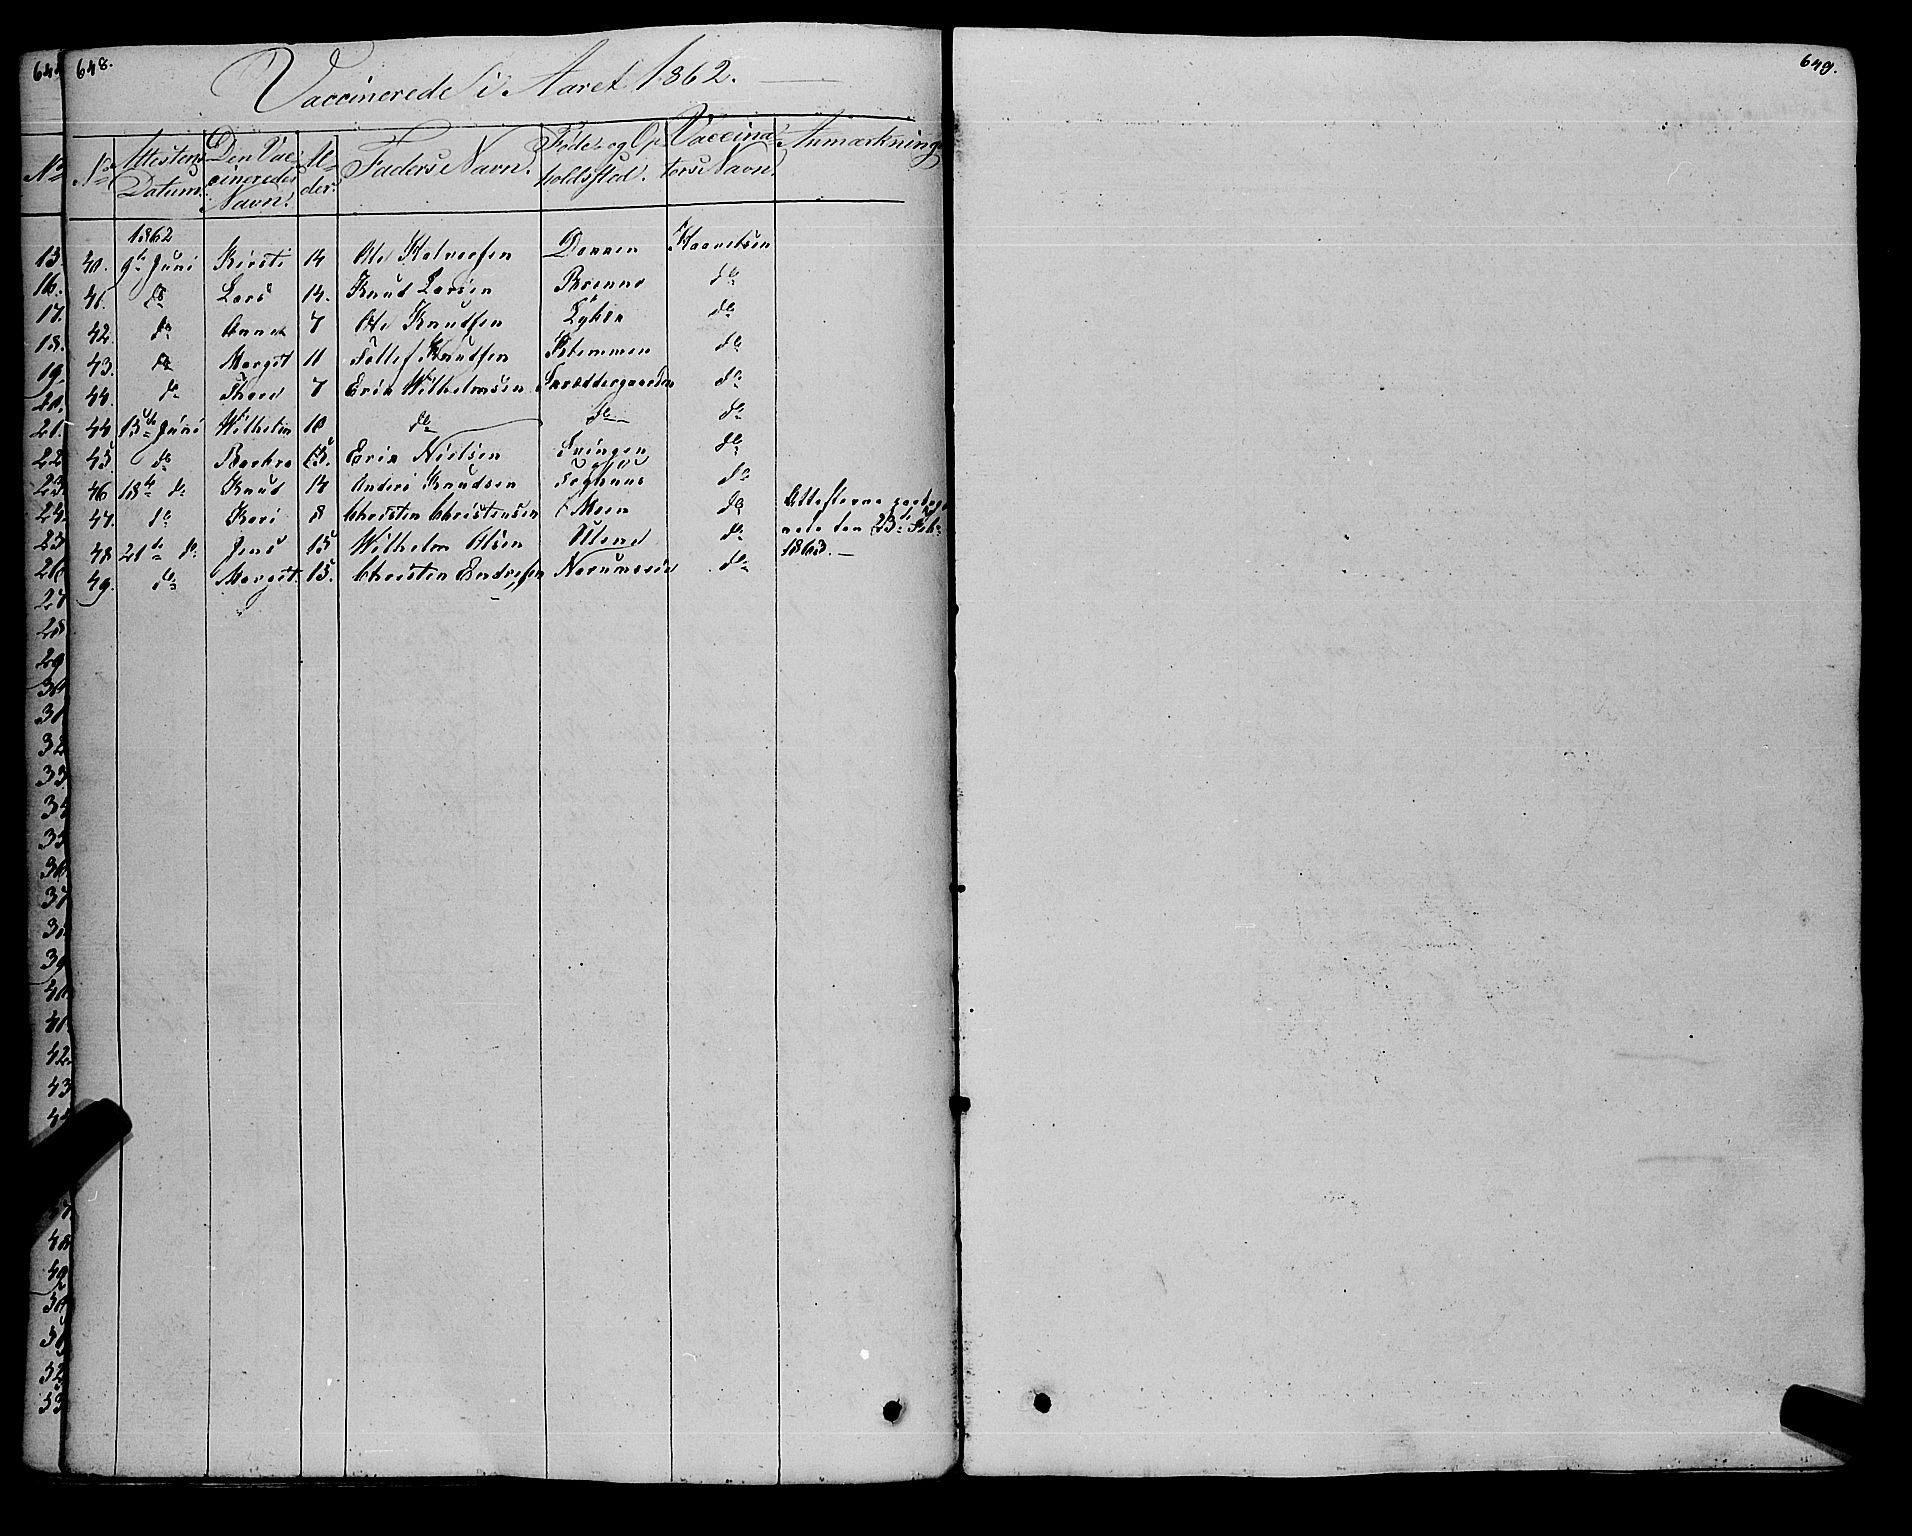 648.
649.
Vaccinerede i Aaret 1862.
No Attestens Datum. Den Vaccineredes Navn. Alder. Faders Navn. Føde- og Opholdssted. Vaccinators Navn. Anmærkning
1862
40. 9de Juni Kirsti 14 Ole Halvorsen Kaaveldsen
41. do Lars 14. Knud Larsen Brenno do
42. do Anne 7 Ole Knudsen do
43. do Margit 11 Tollef Knudsen Stemmen do
44. do Thore 7 Erik Wilhelmsen Snæddergaarden do
44 13de Juni Wilhelm 10 do do do
45. do Barbro 15. Erik Nielsen Svingen do
46 18de do Knud 14 Anders Knudsen do
47. do Kari 8 Christen Christensen Moen do
48 21de do Jens 15 Wilhelm Olsen do
49. do Margit. 15. Christen Endresen do
Attesterne
den 23de Feb.
1863.
No
15.
16.
17.
18.
19.
20.
21.
22
23.
24.
25
26
27
28
29
30
31
32
33
34
35
36
37
38
39
40
41
42.
43
44
47
48
49
50
51
52
53